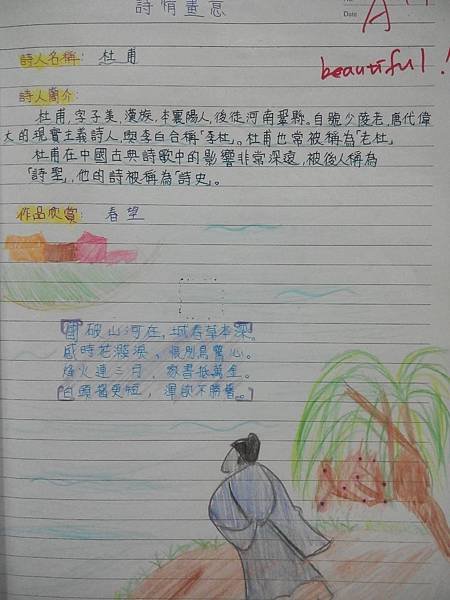 詩情畫意
Date
A+
beautiful!
詩人名稱: 杜甫
詩人簡介:
杜甫,字子美,漢族,本襄陽人,後徙河南鞏縣。自號少陵老,唐代偉
大的現實主義詩人,與李白合稱「李杜」。杜甫也常被稱為「老杜」
杜甫在中國古典詩歌中的影響非常深遠,被後人稱為
「詩聖」,他的詩被稱為「詩史」。
作品欣賞: 春望
國破山河在,城春草木深。
感時花濺淚,恨別鳥驚心。
烽火連三月,家書抵萬金。
白頭搔更短,渾欲不勝簪。